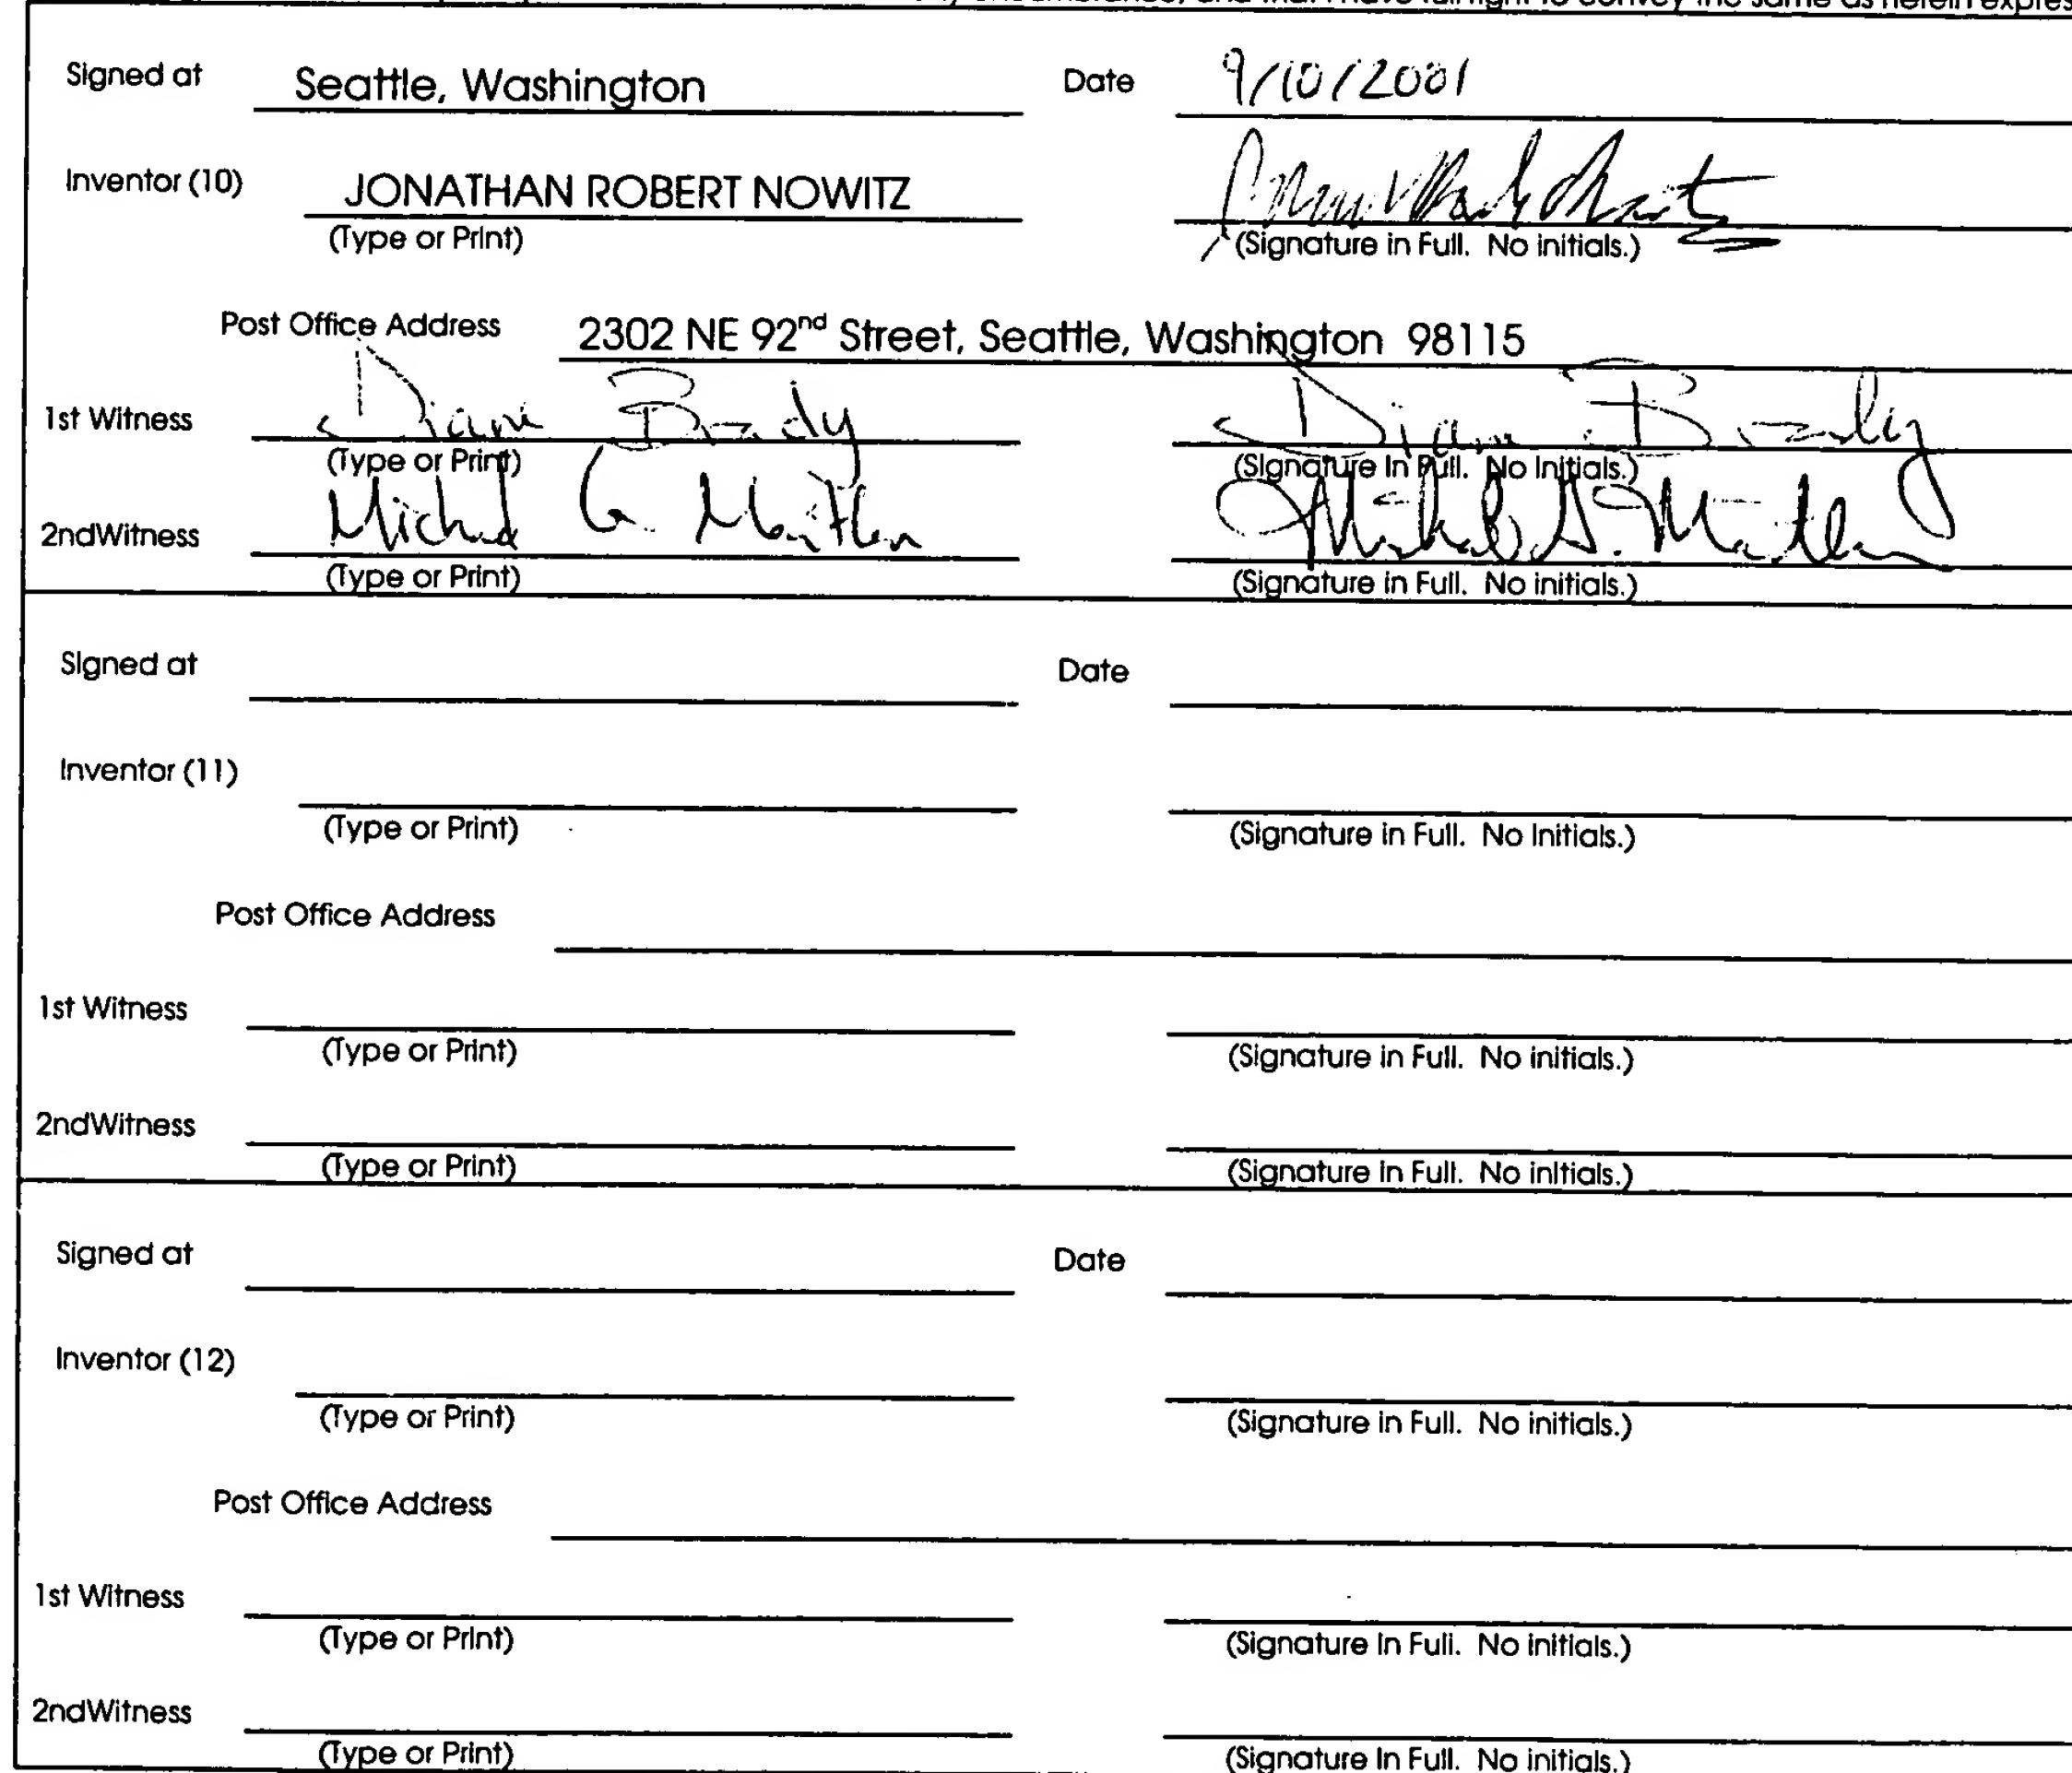 and that I have full right to convey the same as herein
Signed at Seattle, Washington Date 9/10/2001
Inventor (10) JONATHAN ROBERT NOWITZ
(Type or Print) (Signature in Full. No initials.)
Post Office Address 2302 NE 92nd Street, Seattle, Washington 98115
1st Witness Diane Brady Diane Brady
(Type or Print) (Signature in Full. No Initials.)
2ndWitness Michael G. Michael G.
(Type or Print) (Signature in Full. No initials.)
Signed at Date
Inventor (11)
(Type or Print) (Signature in Full. No Initials.)
Post Office Address
1st Witness
(Type or Print) (Signature in Full. No initials.)
2ndWitness
(Type or Print) (Signature in Full. No initials.)
Signed at Date
Inventor (12)
(Type or Print) (Signature in Full. No initials.)
Post Office Address
1st Witness
(Type or Print) (Signature in Full. No initials.)
2ndWitness
(Type or Print) (Signature in Full. No initials.)